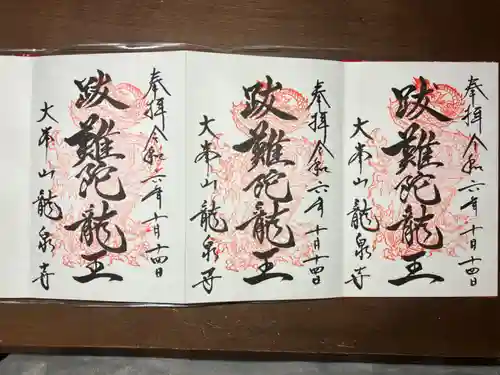 奉拝 令和六年十月十四日
跋難陀龍王
大本山 龍泉寺
奉拝 令和六年十月十四日
跋難陀龍王
大本山 龍泉寺
奉拝 令和六年十月十四日
跋難陀龍王
大本山 龍泉寺